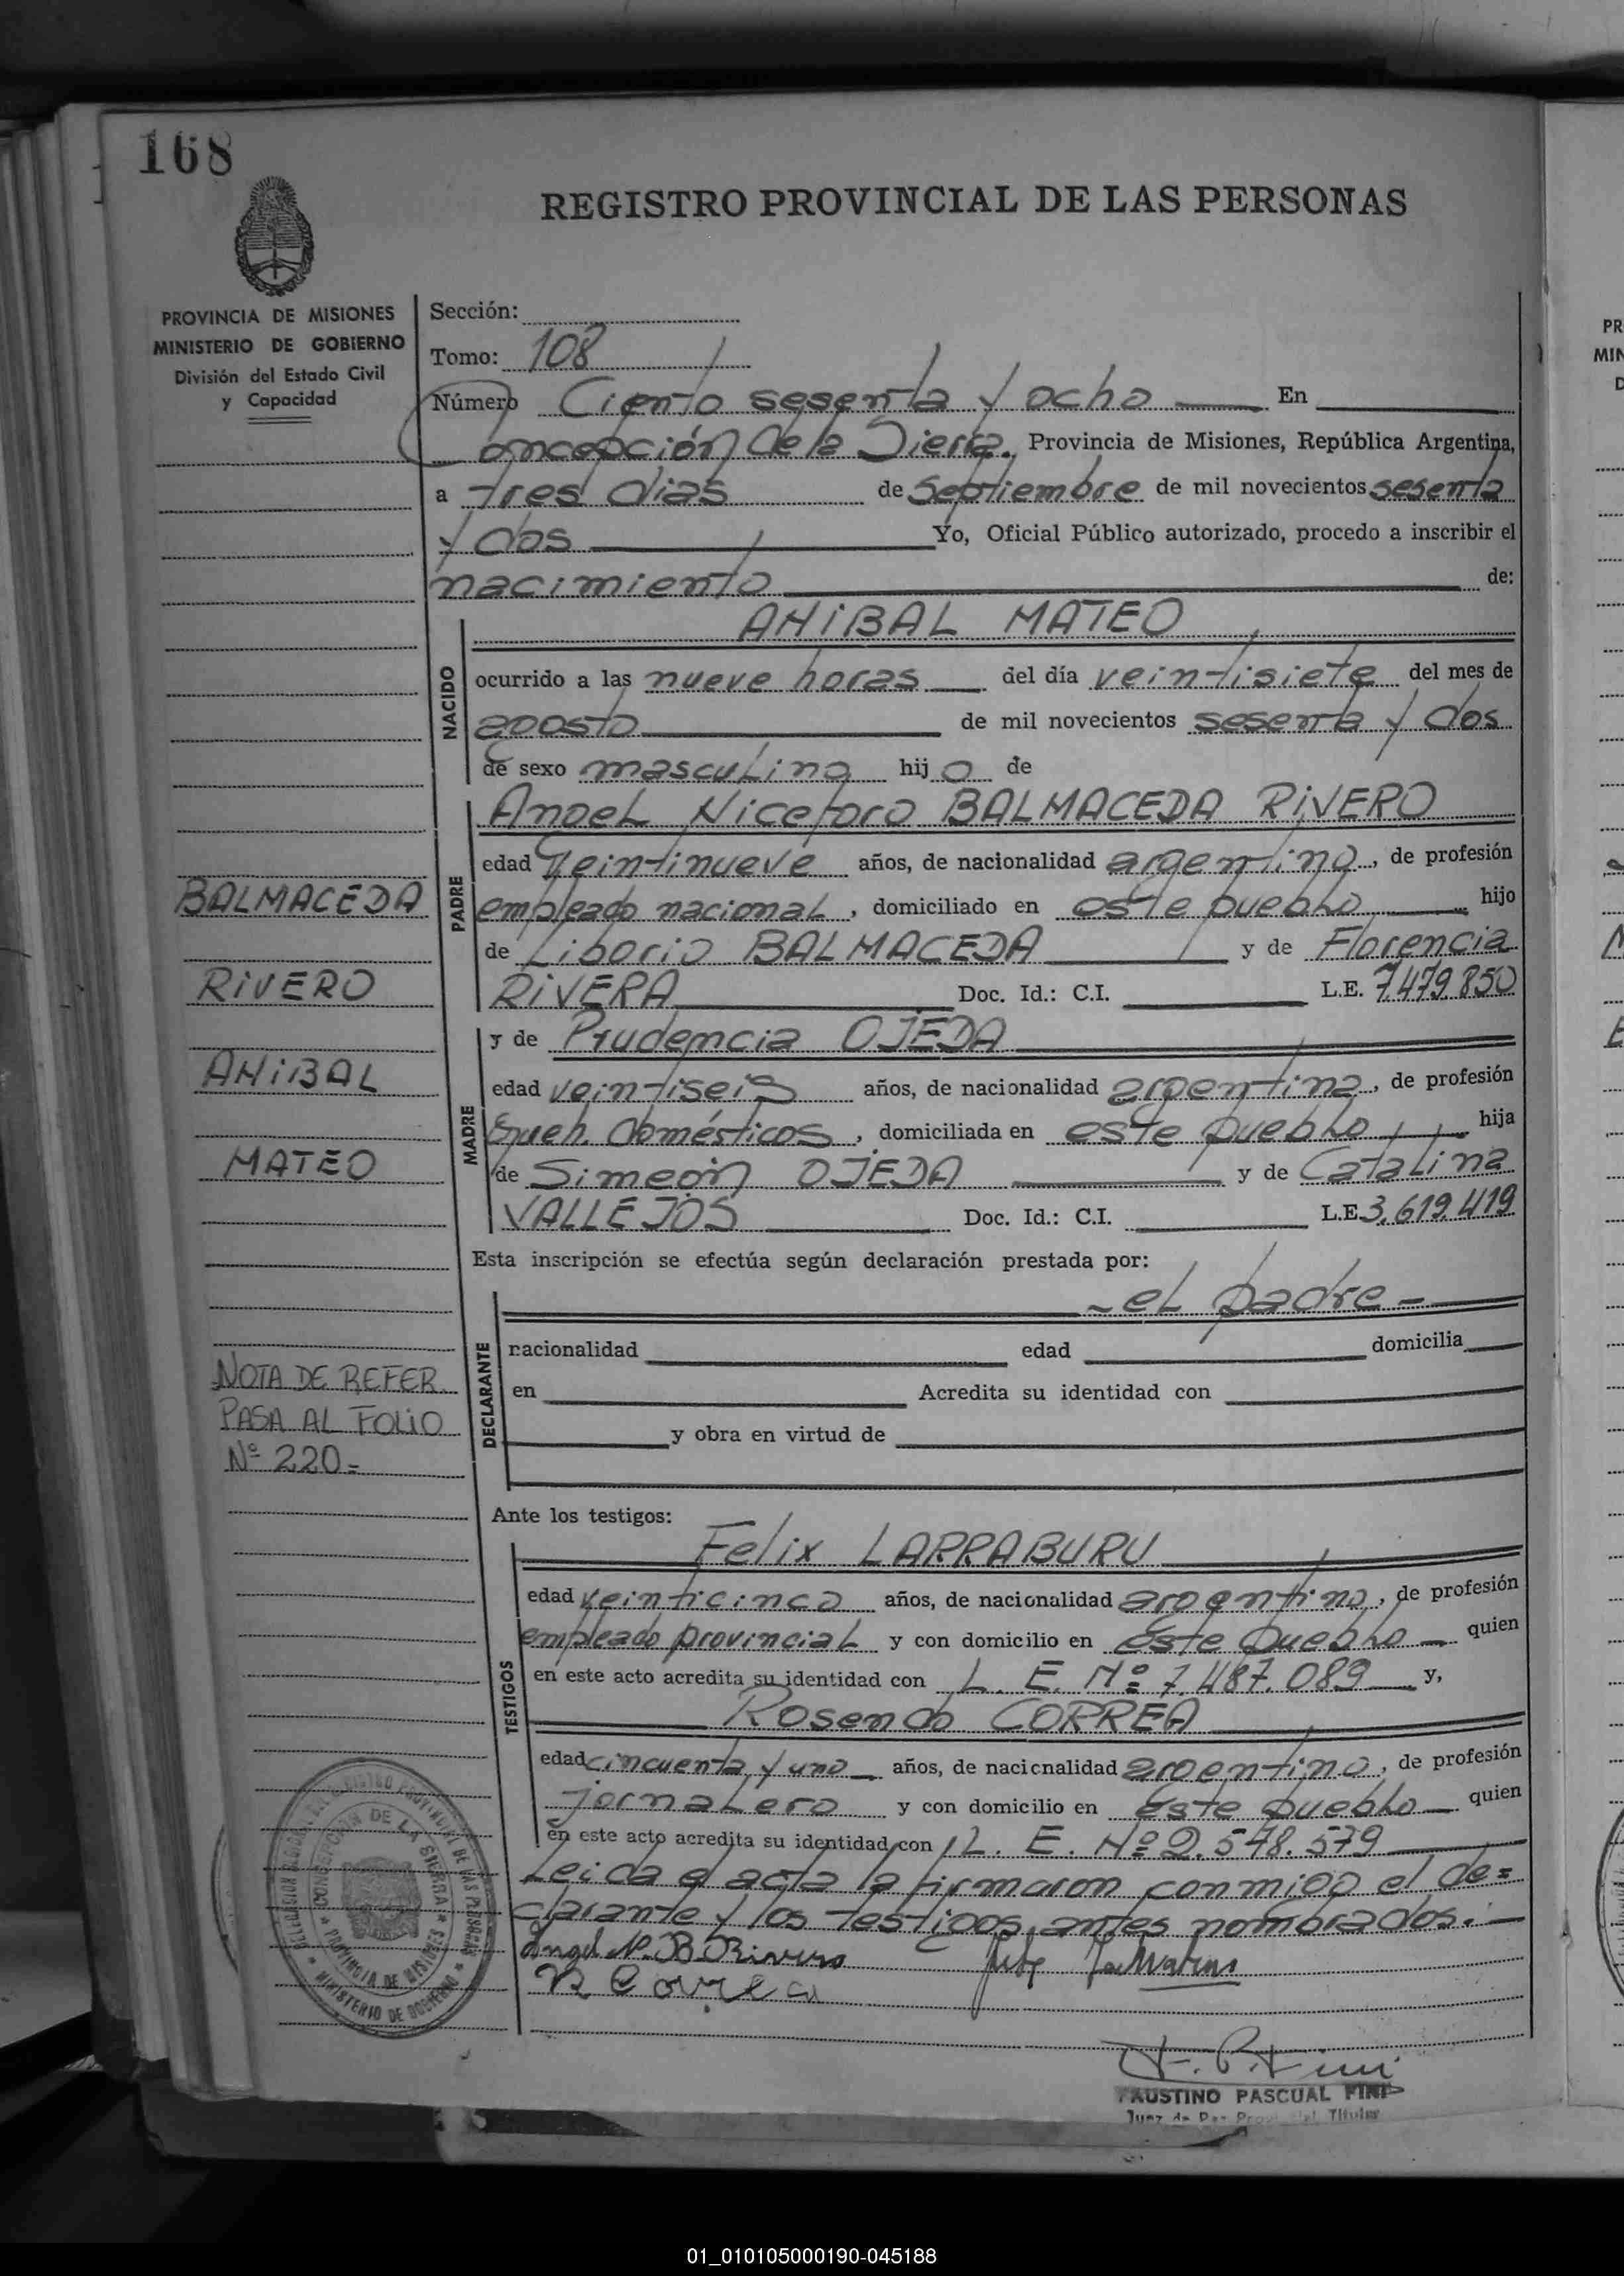 168
REGISTRO PROVINCIAL DE LAS PERSONAS
PROVINCIA DE MISIONES
MINISTERIO DE GOBIERNO
División del Estado Civil
y Capacidad
Sección:
Tomo: 108
Número Ciento sesenta y ocho En
Concepción de la Sierra. Provincia de Misiones, República Argentina,
a tres días de septiembre de mil novecientos sesenta
y dos Yo, Oficial Público autorizado, procedo a inscribir el
nacimiento de:
NACIDO
ANIBAL MATEO
ocurrido a las nueve horas del día veintisiete del mes de
agosto de mil novecientos sesenta y dos
de sexo masculino hijo de
PADRE
Angel Niceforo BALMACEDA RIVERO
edad Veintinueve años, de nacionalidad argentino, de profesión
empleado nacional, domiciliado en este pueblo hijo
de Liborio BALMACEDA y de Florencia
RIVERA Doc. Id.: C.I. L.E. 7.479.850
MADRE
y de Prudencia OJEDA
edad veintiseis años, de nacionalidad argentina, de profesión
Queh. domésticos, domiciliada en este pueblo hija
de Simeón OJEDA y de Catalina
VALLEJOS Doc. Id.: C.I. L.E. 3.619.419
BALMACEDA
RIVERO
ANIBAL
MATEO
Esta inscripción se efectúa según declaración prestada por:
DECLARANTE
- el padre -
nacionalidad edad domicilia
en Acredita su identidad con
y obra en virtud de
NOTA DE REFER.
PASA AL FOLIO
Nº 220=
Ante los testigos:
TESTIGOS
Felix LARRABURU
edad veinticinco años, de nacionalidad argentino, de profesión
empleado provincial y con domicilio en este pueblo - quien
en este acto acredita su identidad con L. E. Nº 7.487.089 y,
Rosendo CORREA
edad cincuenta y uno años, de nacicnalidad argentino, de profesión
jornalero y con domicilio en este pueblo quien
en este acto acredita su identidad con L. E. Nº 2.578.579
Leida el acta la firmaron conmigo el de=
clarante y los testigos antes nombrados.
Angel N. B. Rivero
R Correa
CONCEPCION DE LA SIERRA
PROVINCIA DE MISIONES
MINISTERIO DE GOBIERNO
FAUSTINO PASCUAL FINI
Juez de Paz Titular
01_010105000190-045188